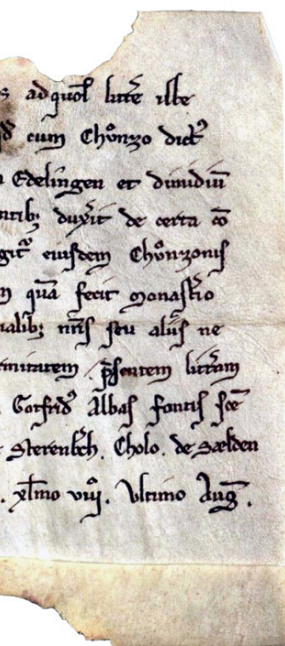 s ad quo᷒ lr̄e iste
cum Chůnzo dict᷒
Edelingen et dimidiū
ntib; duxit de certa
git᷒ eiusdem Chůnzonis
m quā fecit monast̄io
ialib; nr̄is seu aliis ne
rmitatem p̄sentem litt̄am
Gotfrid᷒ Albas fontis sc̄e
Sterenb̄ch. Cholo. de Sælden
. xl̊mo viiij. Ultimo Aug̅.